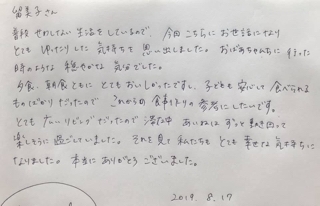 留美子さん
普段 せわしない生活をしているので、今回こちらにお世話になり
とても ゆったりした 気持ちを 思い出しました。おばあちゃんちに 行った
時のような 穏やかな 気分でした。
夕食、朝食ともに とても おいしかったですし、子どもも 安心して 食べられる
ものばかりだったので これからの 食事作りの 参考にしたいです。
とても 広い リビングだったので 滞在中 あいねは ずっと 動き回って
楽しそうに 過ごしていました。それを見て 私たちも とても 幸せな 気持ちに
なりました。本当に ありがとう ございました。
2019. 8. 17